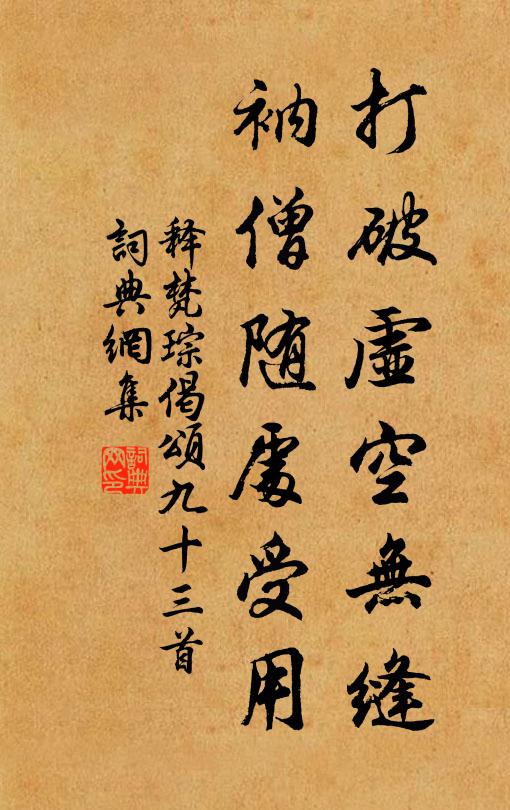 打破虛空無縫
衲僧随處受用
释梵琮偈頌九十三首
詞典網集
詞典網印